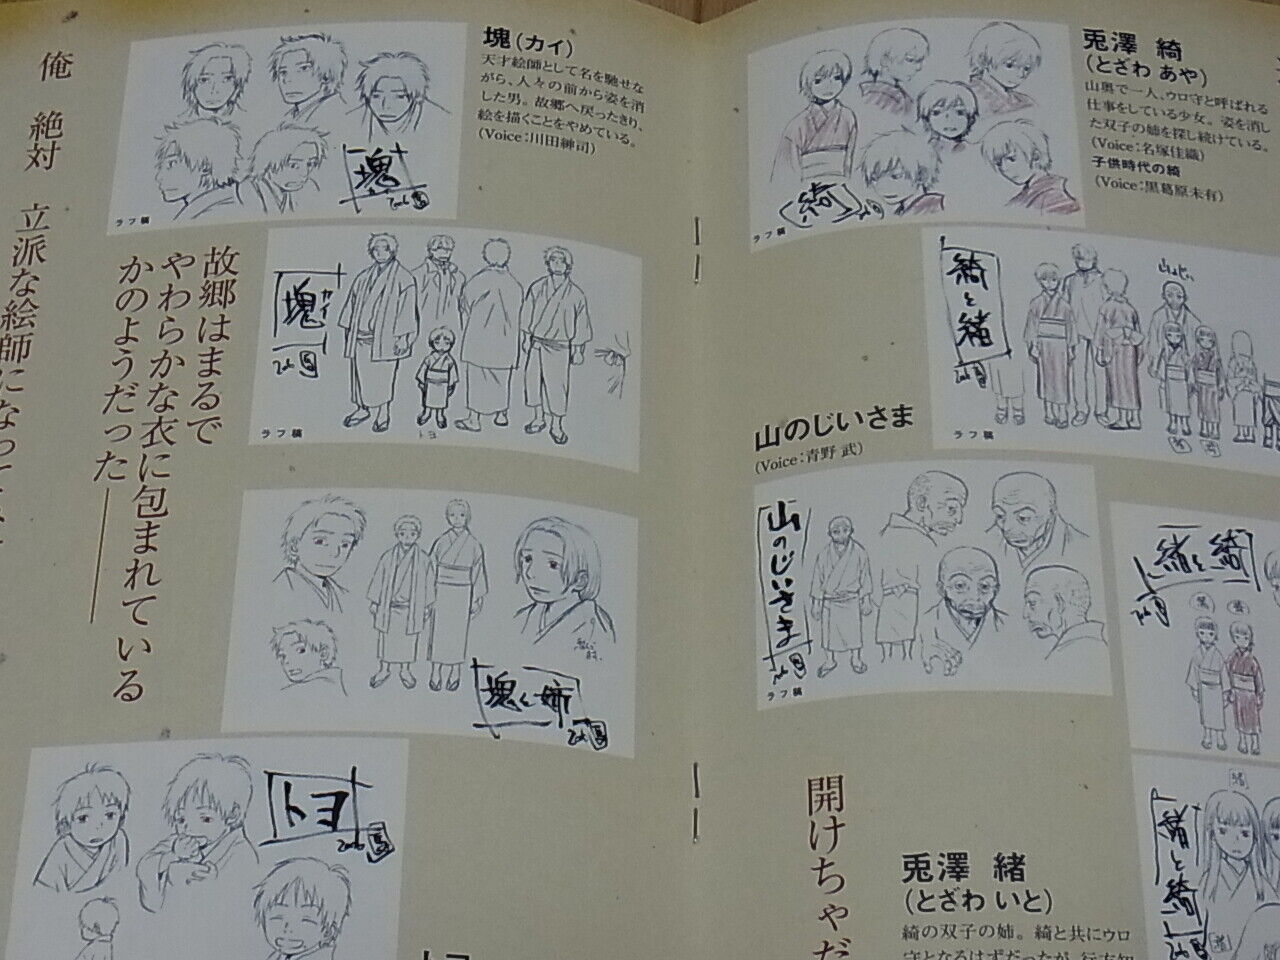 塊(カイ)
天才絵師として名を馳せな
がら、人々の前から姿を消
した男。故郷へ戻ったきり、
絵を描くことをやめている。
(Voice:川田紳司)
塊
ラフ稿
俺 絶対 立派な絵師になって
故郷はまるで
やわらかな衣に包まれている
かのようだった――
塊
カイ
ラフ稿
トヨ
塊と姉
トヨ
兎澤 綺
(とざわ あや)
山奥で一人、ウロ守と呼ばれる
仕事をしている少女。姿を消し
た双子の姉を探し続けている。
(Voice:名塚佳織)
子供時代の綺
(Voice:黒葛原未有)
綺
ラフ稿
綺と緒
山のじい
ラフ稿
山のじいさま
(Voice:青野 武)
山のじいさま
ラフ稿
緒と綺
開けちゃだ
兎澤 緒
(とざわ いと)
綺の双子の姉。綺と共にウロ
守となるはずだったが、行方知
緒
緒と綺